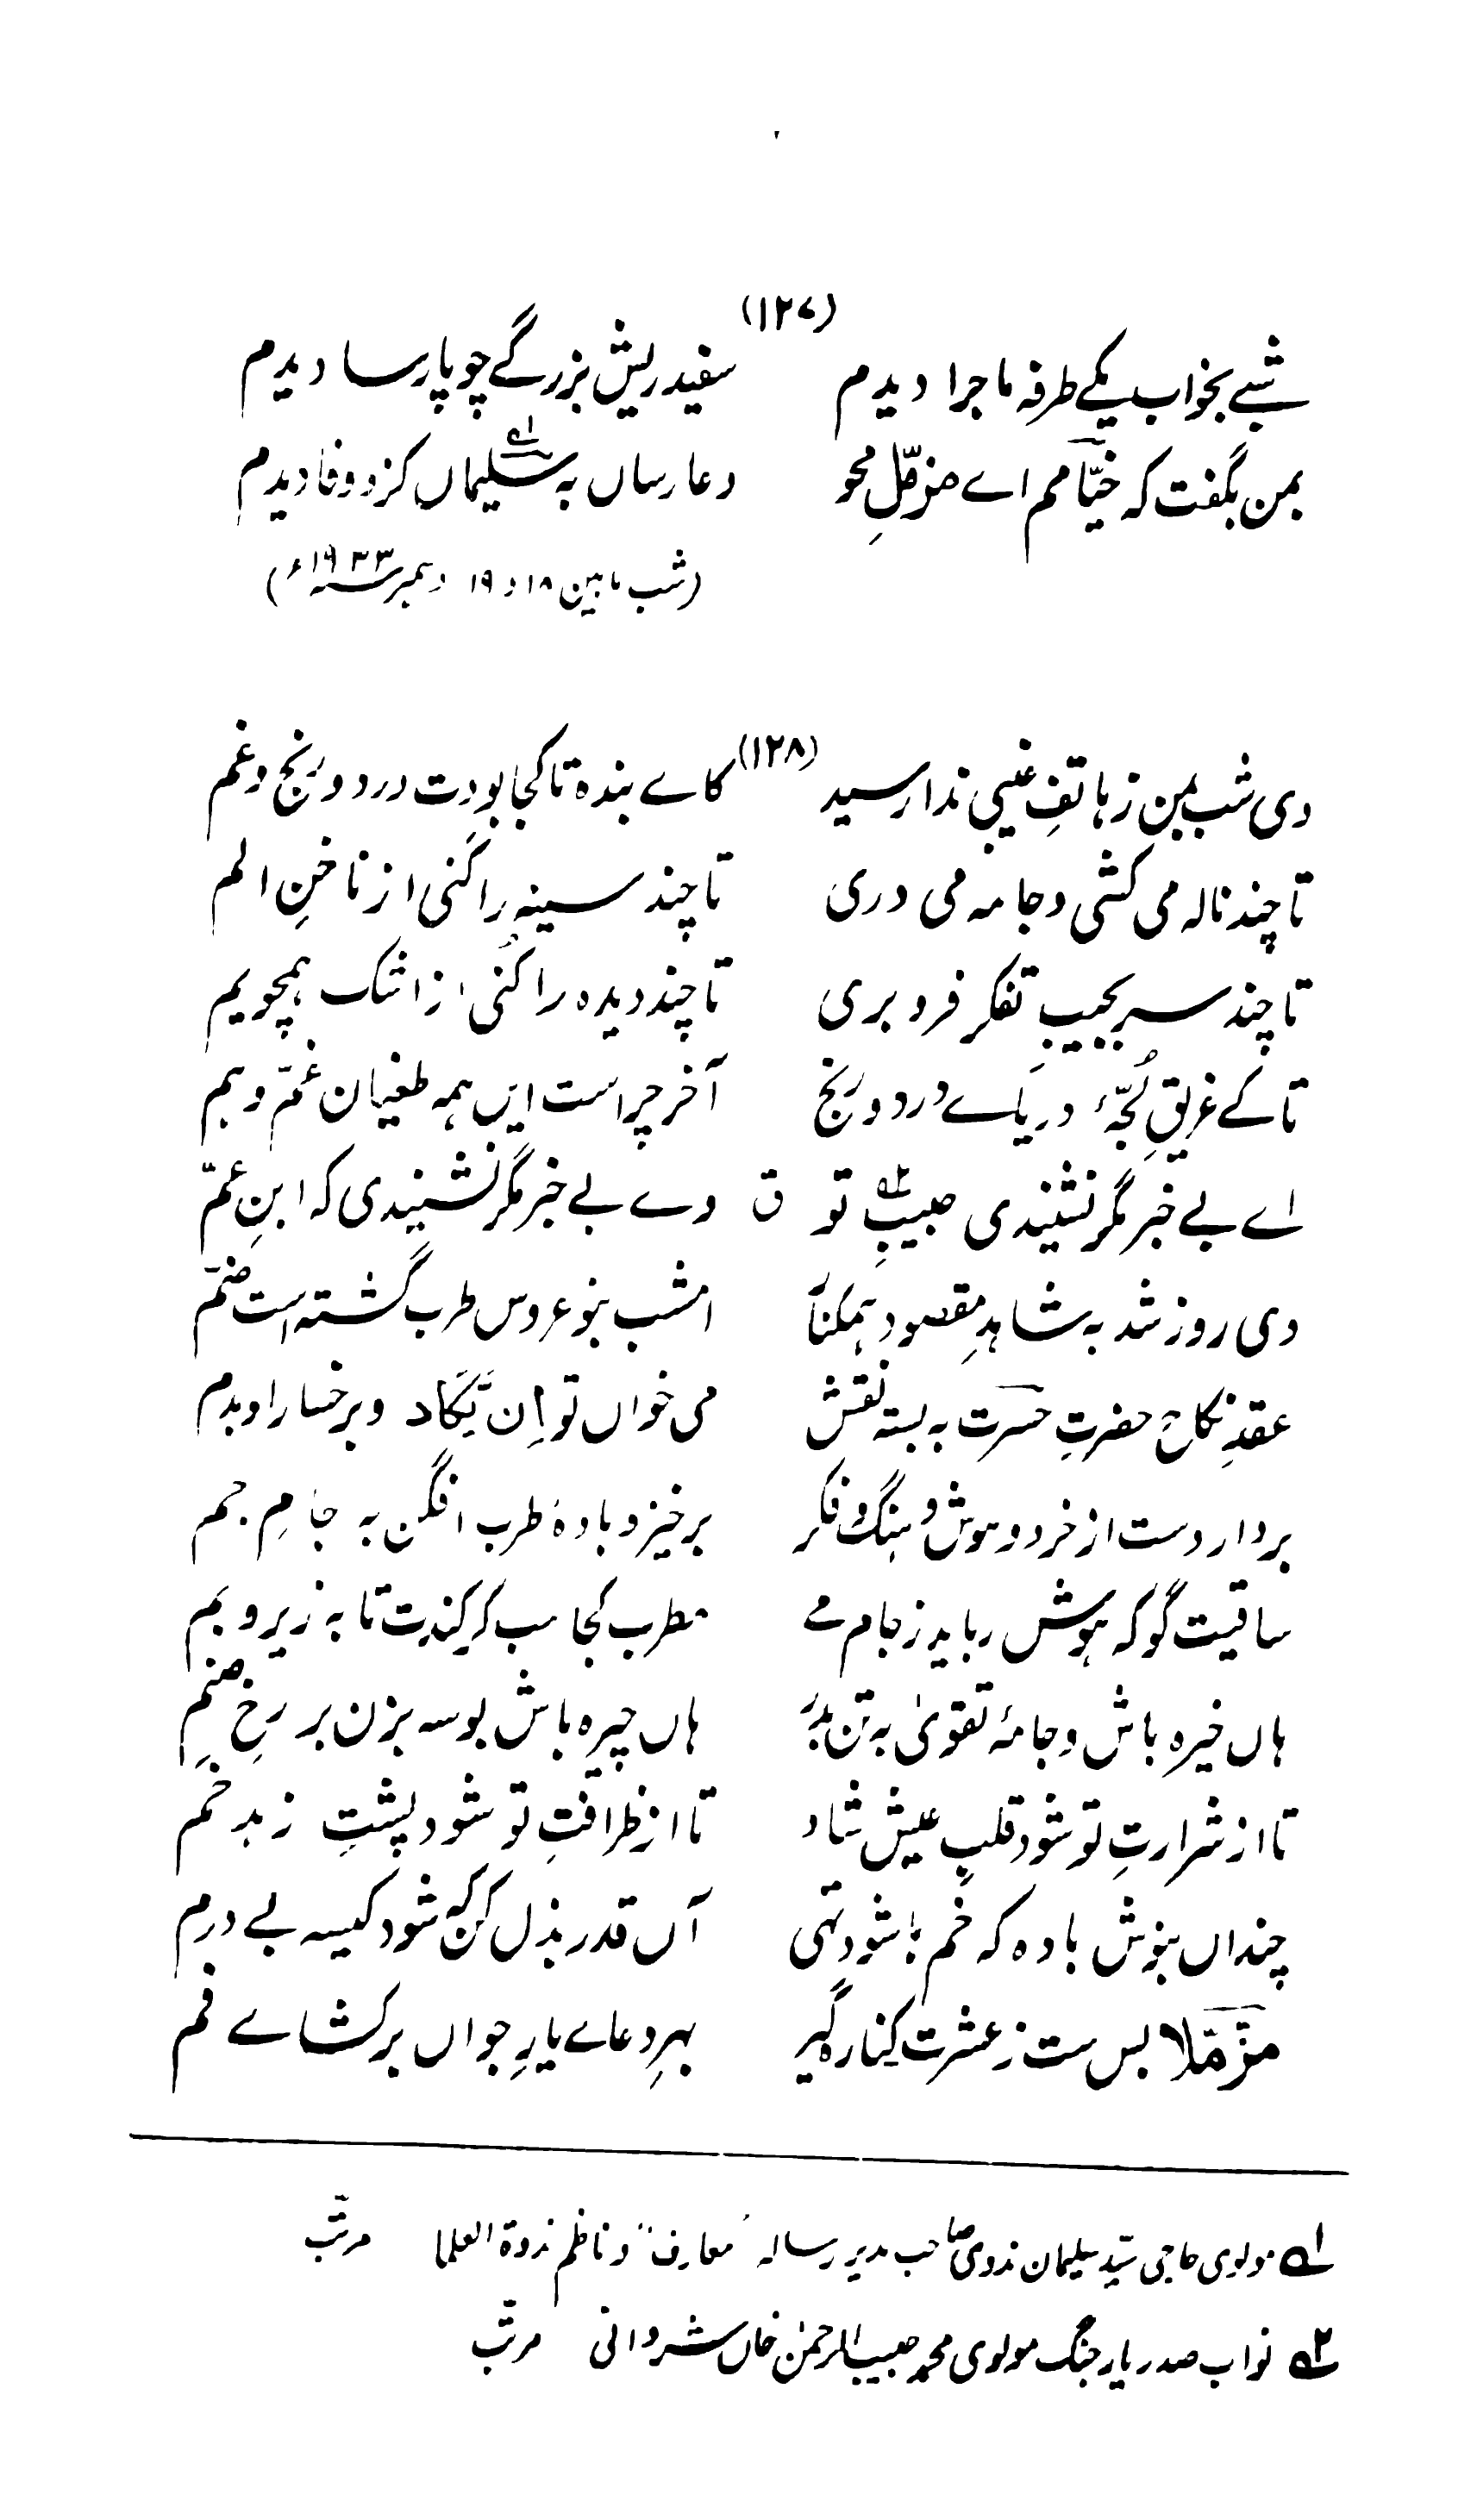 (۱۲۷)
شبے بخواب یکے طرفہ ماجرا دیدم سفید ریش بزرگے چو پارسا دیدم
بمن بگفت کہ خیّامم اے مزمّلِ محو دعا رساں بہ سلیماں۱؎ کزو وفا دیدم
(شب مابین ۱۸ و ۱۹ دسمبر ۱۹۳۳ء)
(۱۲۸)
دی شب بمن زہاتفِ غیبی ندا رسید کاے بندہ تا کجا بودت درد و رنج و غم
تا چند نالہ می کشی و جامہ می دری تا چند سینہ را کنی از ناخنِ الم
تا چند سر بجیبِ تفکر فرو بری تا چند دیدہ را کنی از اشک ہمچو یم
تا کے غریقِ لُجّۂ دریاے درد و رنج آخر چراست ایں ہمہ طغیان غم و ہم
اے بے خبر مگر نشنیدی حبیبِ۲؎ تو ق وے بے خبر مگر نشنیدی کہ ابنِ عم
دی روز شد بہ شاہدِ مقصود ہمکنار امشب بنو عروس طرب گشتہ است ضم
عقدِ نکاحِ حضرتِ حسرت بہ بستہ نقش می خواں تو اِن یَّکَاد و برخسار او بدم
بردار دست از خرد و ہوش و ننگ و فکر برخیز و بادۂ طرب افگن بہ جامِ جم
ساقیت گو کہ ہوش رباید زجام مے مطرب کجاست کزیت تا بہ زیر و بم
ہاں خیرہ باش و جامۂ تقویٰ بہ تن بدر ہاں چیرہ باش بوسہ بزن بر رخِ صنم
تا از شرارتِ تو شود قلبِ عیش شاد تا از ظرافتِ تو شود پشتِ زہد خم
چنداں بنوش بادہ کہ خم ہا شود تہی آں قدر بذل کن کہ شود کیسہ بے درم
مزّمّلا بس ست ز عشرت کنارہ گیر بہرِ دعاے یارِ جواں برکشاے فم
۱؎ مولوی حاجی سیّد سلیمان ندوی صاحب مدیر رسالہ "معارف" و ناظم ندوۃ العلما مرتّب
۲؎ نواب صدر یار جنگ مولوی محمد حبیب الرحمٰن خاں شروانی مرتّب